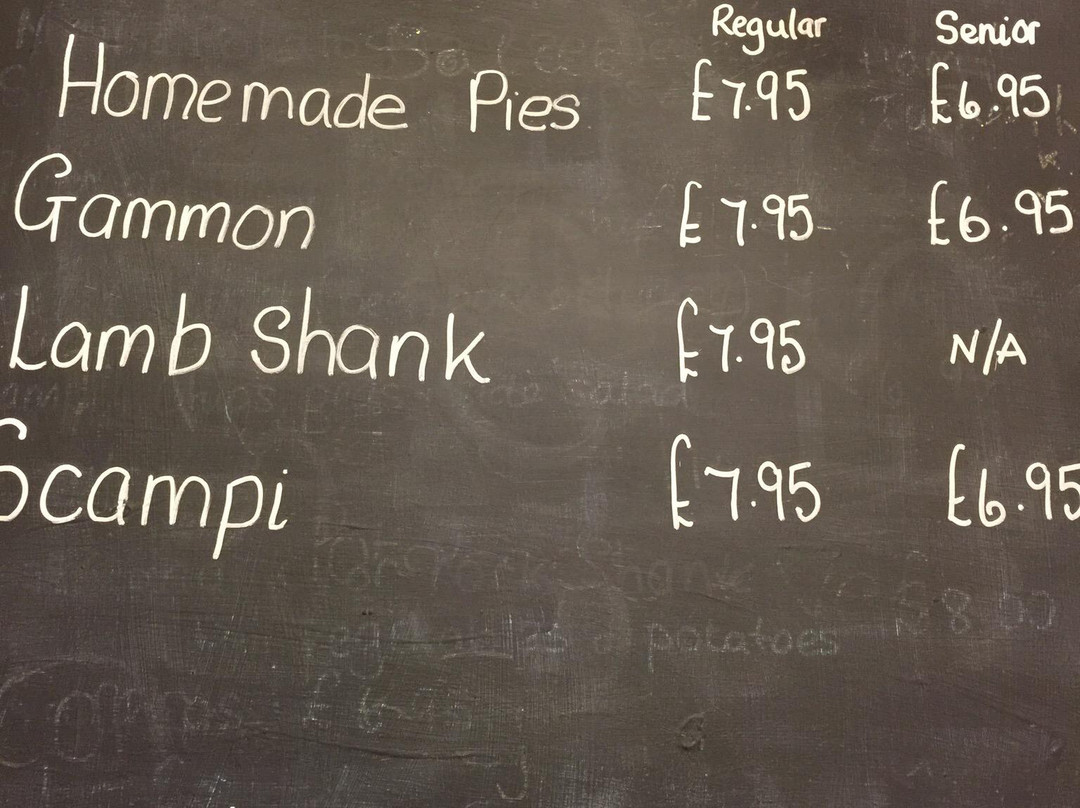 Regular Senior
Homemade Pies £7.95 £6.95
Gammon £7.95 £6.95
Lamb Shank £7.95 N/A
Scampi £7.95 £6.95
potatoes